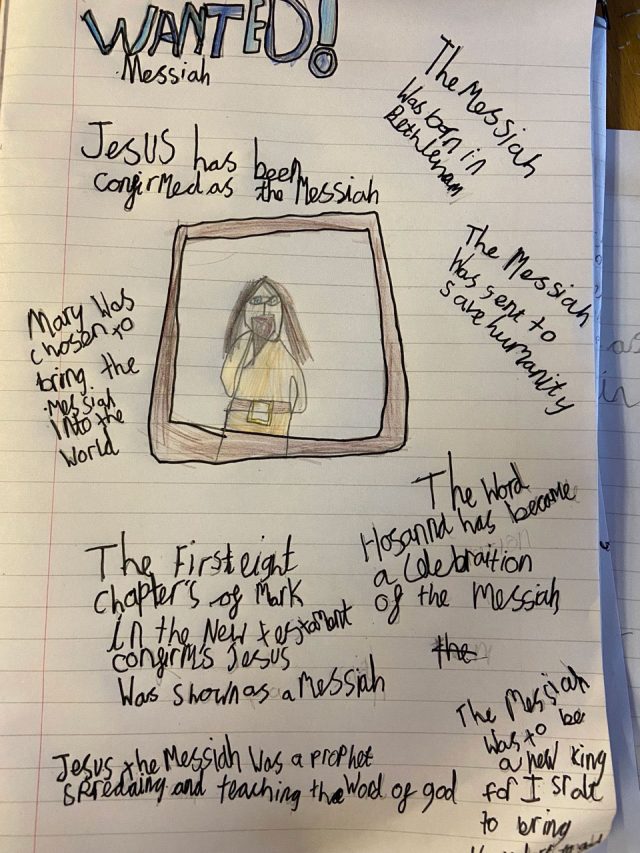 WANTED!
Messiah
Jesus has been
confirmed as the Messiah
The Messiah
Was born in
Bethleham
The Messiah
Was sent to
save humanity
Mary Was
chosen to
bring the
Messiah
into the
World
The Word
Hosanna has become
a Celebraition
of the Messiah
The First eight
chapter's of Mark
in the New testamant
confirm's Jesus
Was shown as a Messiah
the
The Messiah
Was to be
a new king
for Isralt
to bring
Jesus the Messiah Was a prophet
spredaing and teaching the Word of god